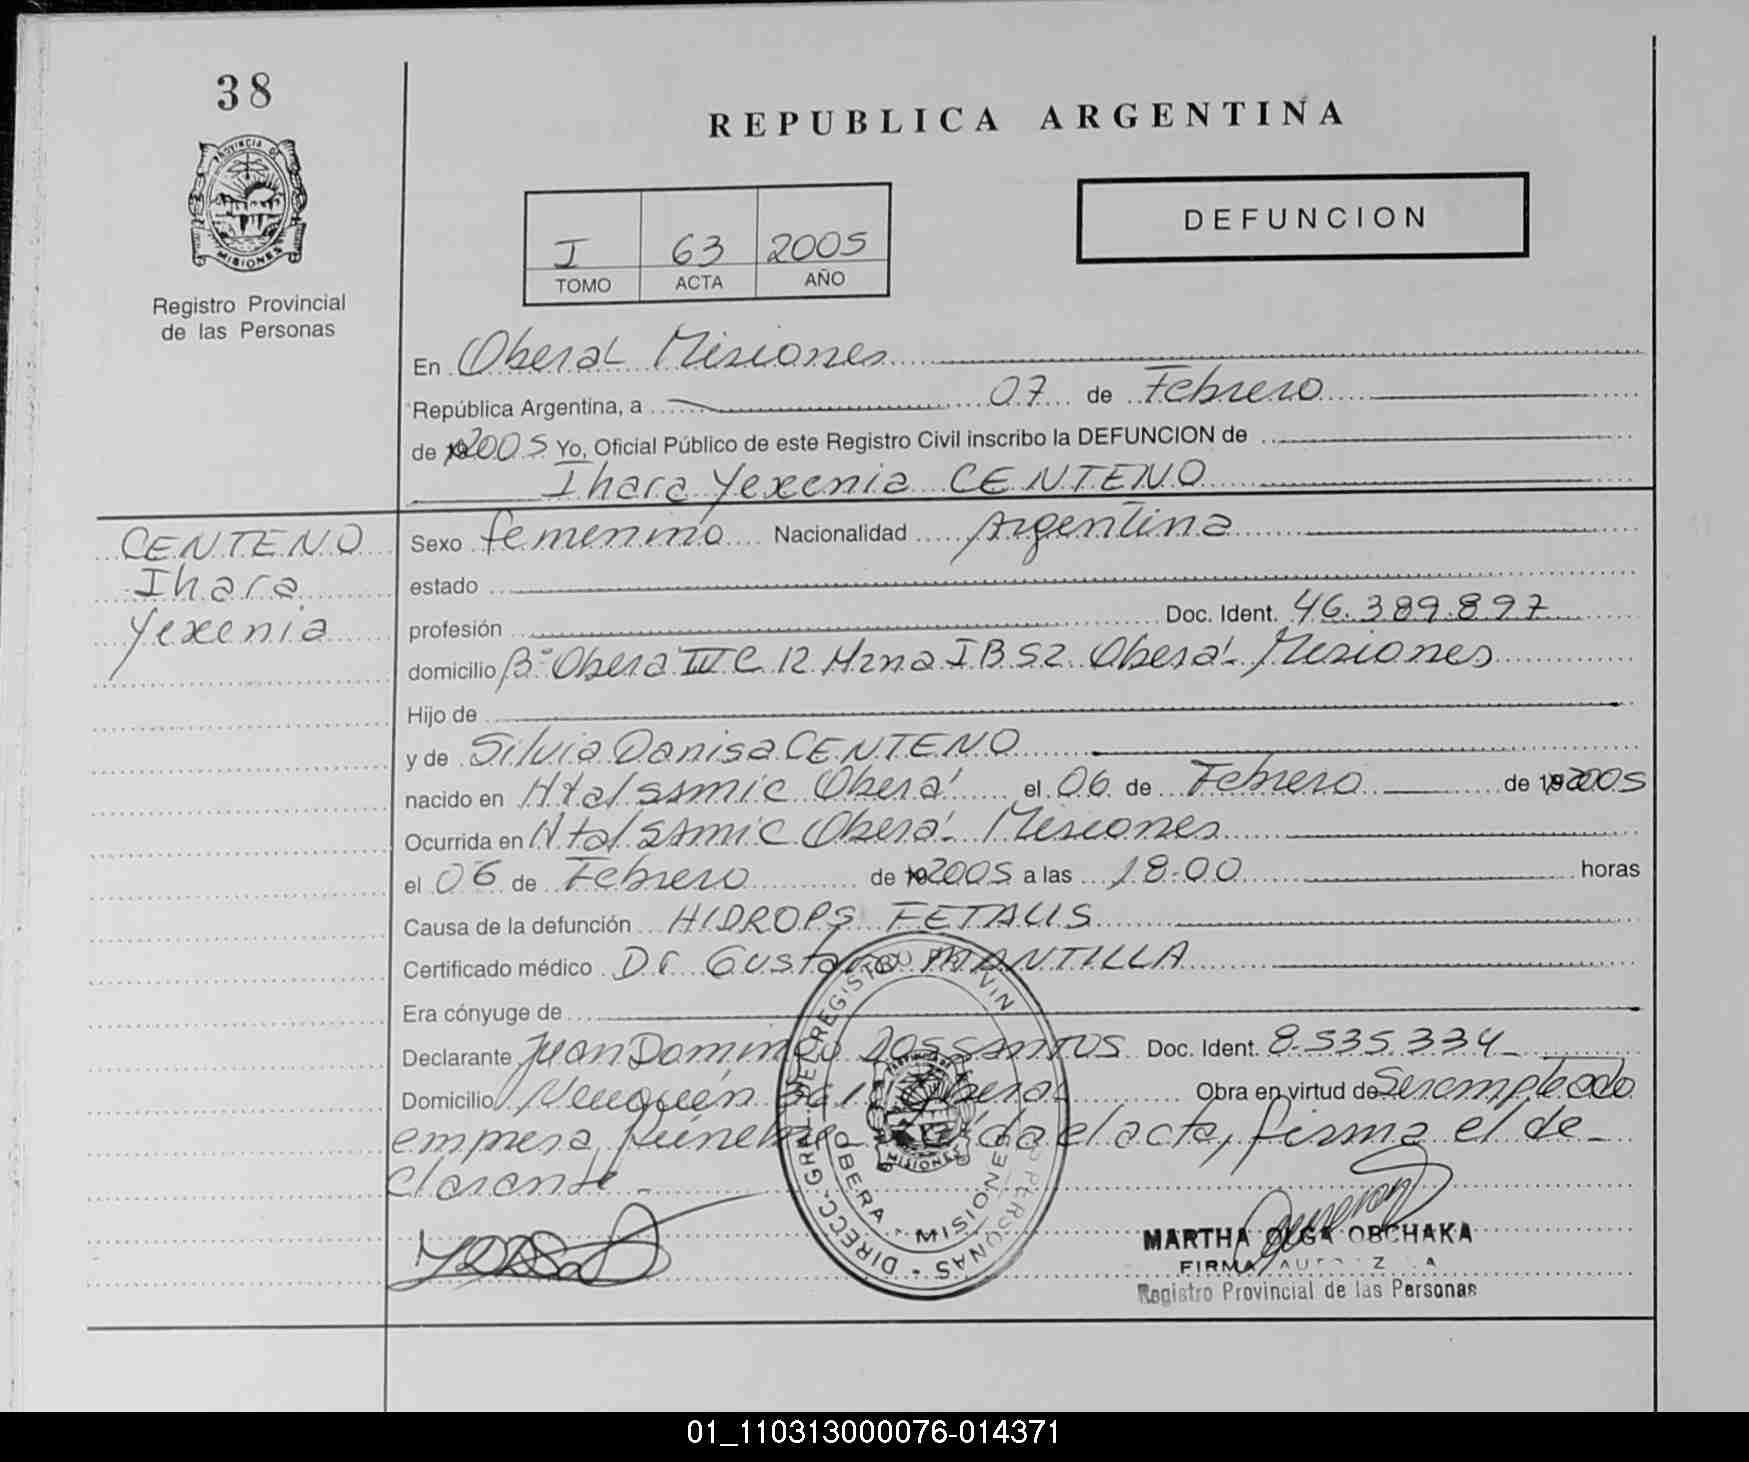 38
REPUBLICA ARGENTINA
PROVINCIA DE
MISIONES
Registro Provincial
de las Personas
DEFUNCION
I 63 2005
TOMO ACTA AÑO
En Oberá Misiones
República Argentina, a 07 de Febrero
de 2005 Yo, Oficial Público de este Registro Civil inscribo la DEFUNCION de
Ihara Yexenia CENTENO
CENTENO
Ihara
Yexenia
Sexo femenino Nacionalidad Argentina
estado
profesión Doc. Ident. 46.389.897
domicilio B° Obera III C 12 Mzna I B S2 Oberá - Misiones
Hijo de
y de Silvia Danisa CENTENO
nacido en Htal SSMIC Oberá el 06 de Febrero de 2005
Ocurrida en Htal SAMIC Oberá - Misiones
el 06 de Febrero de 2005 a las 18:00 horas
Causa de la defunción HIDROPS FETALIS
Certificado médico Dr Gustavo MANTILLA
Era cónyuge de
Declarante Juan Domingo DOSSANTOS Doc. Ident. 8.535.334
Domicilio Neuquén Oberá Obra en virtud de Ser empleado
empresa fúnebre Leída el acta, firma el de-
clarante -
DIRECC. GRAL. DEL REGISTRO PROVIN PERSONAS
OBERA - MISIONES
MISIONES
MARTHA OLGA OBCHAKA
FIRMA
Registro Provincial de las Personas
01_110313000076-014371